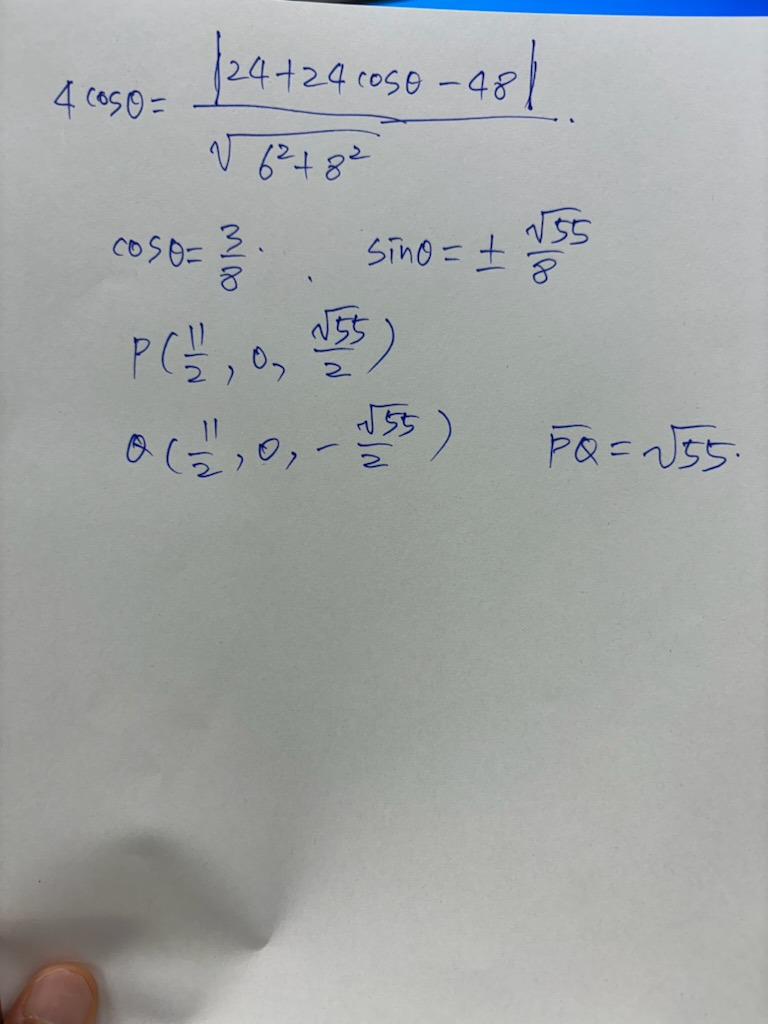 4cosθ = |24+24cosθ-48| / √(6²+8²).
cosθ = 3/8. sinθ = ± √55/8
P(11/2, 0, √55/2)
Q(11/2, 0, -√55/2) P̅Q̅ = √55.